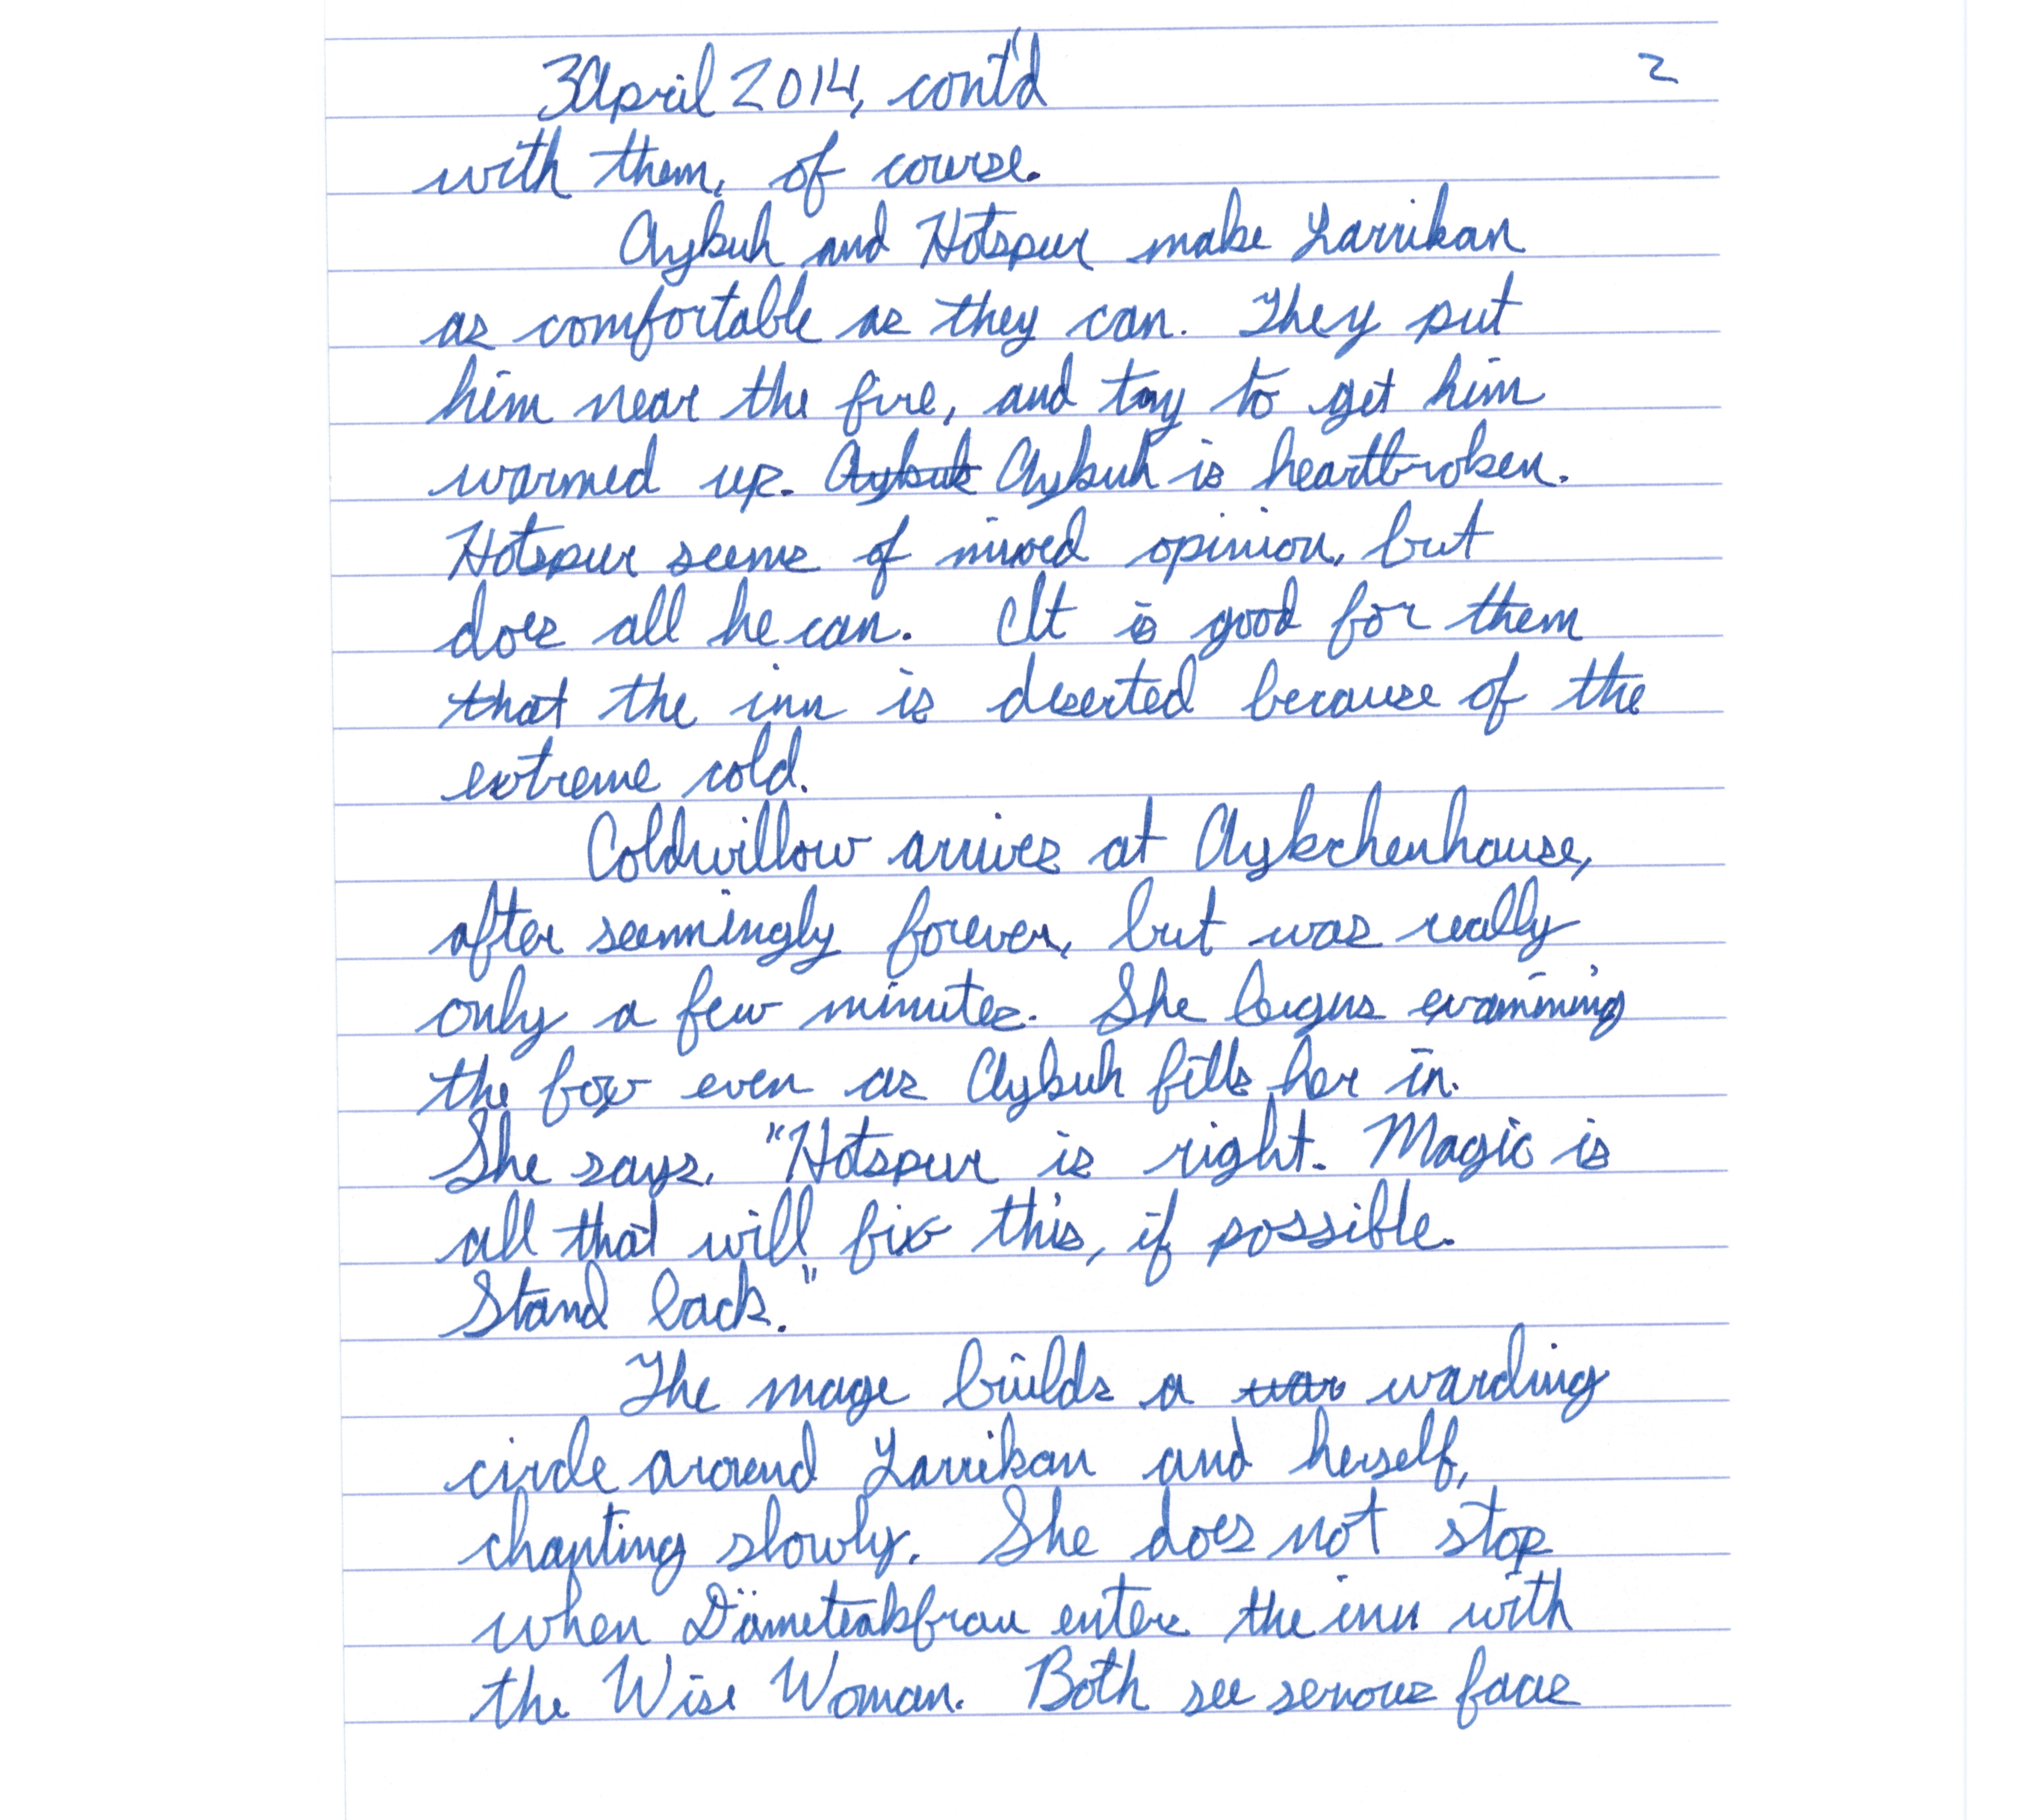 3 April 2014, cont'd 2
with them, of course.
Aykuh and Hotspur make Larrikan
as comfortable as they can. They put
him near the fire, and try to get him
warmed up. Aykuh Aykuh is heartbroken.
Hotspur seems of mixed opinion, but
does all he can. It is good for them
that the inn is deserted because of the
extreme cold.
Coldwillow arrives at Aykchenhause,
after seemingly forever, but was really
only a few minutes. She begins examining
the fox even as Aykuh fills her in.
She says, "Hotspur is right. Magic is
all that will fix this, if possible.
Stand back."
The mage builds a war warding
circle around Larrikan and herself,
chanting slowly. She does not stop
when Dämeteakfrau enters the inn with
the Wise Woman. Both see serious face